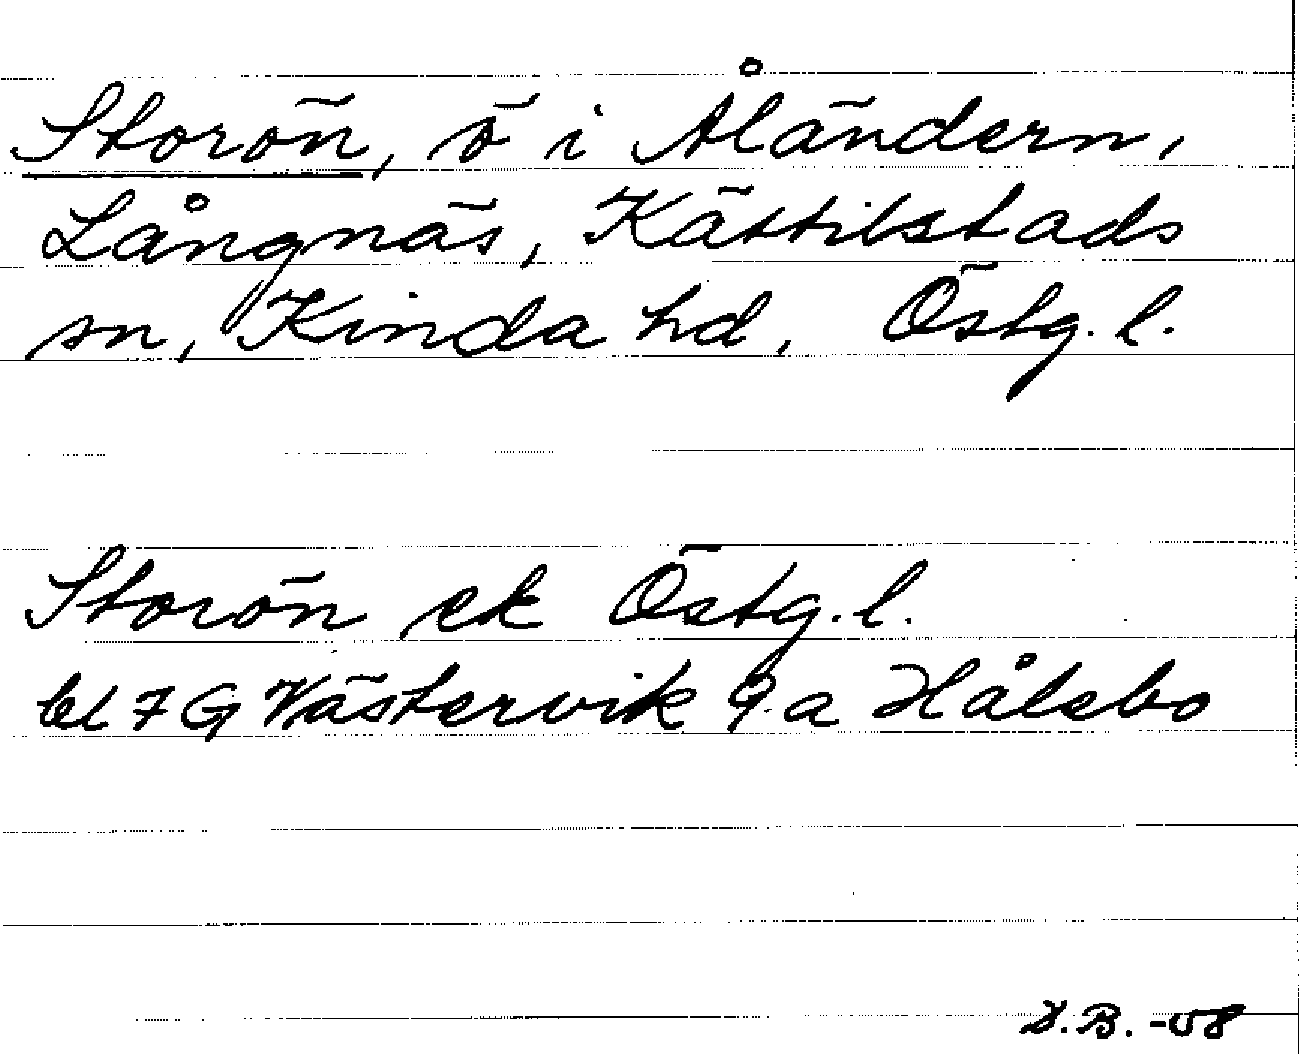 Storön, ö i Åländern,
Långnäs, Kättilstads
sn, Kinda hd, Östg. l.
Storön ek Östg. l.
bl 7 G Västervik 9.a Hålebo
D.B. -08